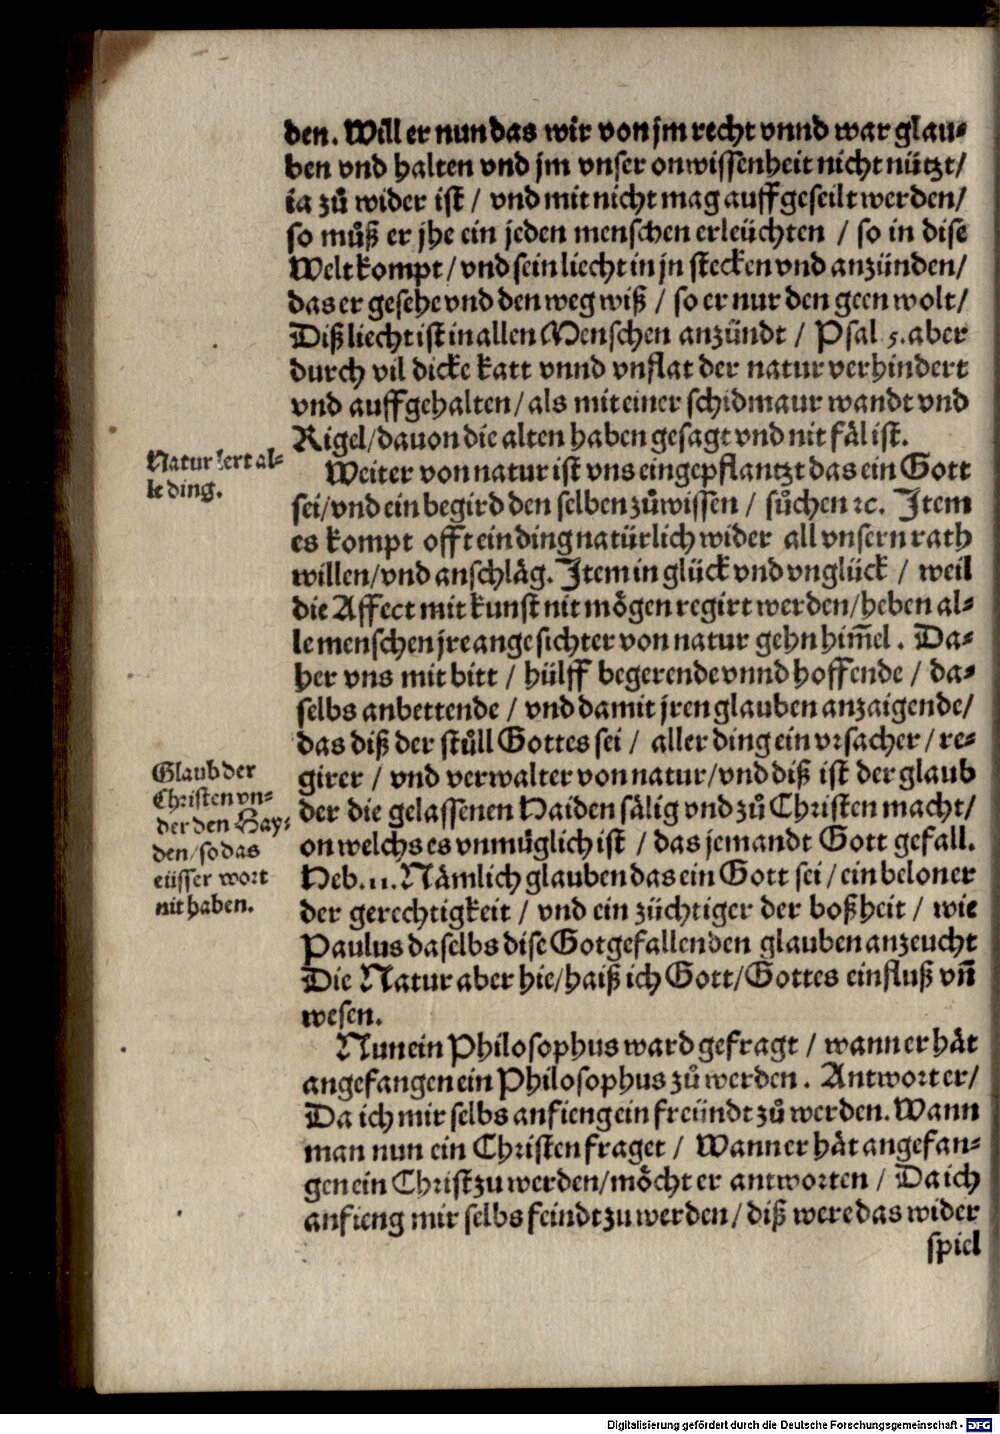 den. Will er nun das wir von jm recht vnnd war glau⸗
ben vnd halten vnd jm vnser onwissenheit nicht nützt/
ia zů wider ist / vnd mit nicht mag auffgeseilt werden/
so můß er jhe ein jeden menschen erleüchten / so in dise
Welt kompt/ vnd sein liecht in jn stecken vnd anzünden/
das er gesehe vnd den weg wiß / so er nur den geen wolt/
Diß liecht ist in allen Menschen anzündt / Psal 5. aber
durch vil dicke katt vnnd vnflat der natur verhindert
vnd auffgehalten/ als mit einer schidmaur wandt vnd
Rigel/dauon die alten haben gesagt vnd nit fäl ist.
Natur lert al⸗
le ding.
Weiter von natur ist vns eingepflantzt das ein Gott
sei/vnd ein begird den selben zůwissen / sůchen ꝛc. Item
es kompt offt ein ding natürlich wider all vnsern rath
willen/vnd anschläg. Item in glück vnd vnglück / weil
die Affect mit kunst nit mögen regirt werden/heben al⸗
le menschen jre angesichter von natur gehn him̃el. Da⸗
her vns mit bitt / hülff begerende vnnd hoffende / da⸗
selbs anbettende / vnd damit jren glauben anzaigende/
das diß der stůll Gottes sei / aller ding ein vrsacher / re⸗
girer / vnd verwalter von natur/vnd diß ist der glaub
der die gelassenen Haiden sälig vnd zů Christen macht/
on welchs es vnmüglich ist / das jemandt Gott gefall.
Heb.11. Nämlich glauben das ein Gott sei / ein beloner
der gerechtigkeit / vnd ein züchtiger der boßheit / wie
Paulus daselbs dise Gotgefallenden glauben anzeucht
Die Natur aber hie/haiß ich Gott/Gottes einfluß vñ
wesen.
Glaub der
Christen vn⸗
der den Hay⸗
den/so das
eüsser wort
nit haben.
Nun ein Philosophus ward gefragt / wann er hät
angefangen ein Philosophus zů werden. Antwort er/
Da ich mir selbs anfieng ein freündt zů werden. Wann
man nun ein Christen fraget / Wann er hät angefan⸗
gen ein Christ zu werden/möcht er antworten / Da ich
anfieng mir selbs feindt zu werden/ diß were das wider
spiel
Digitalisierung gefördert durch die Deutsche Forschungsgemeinschaft - DFG